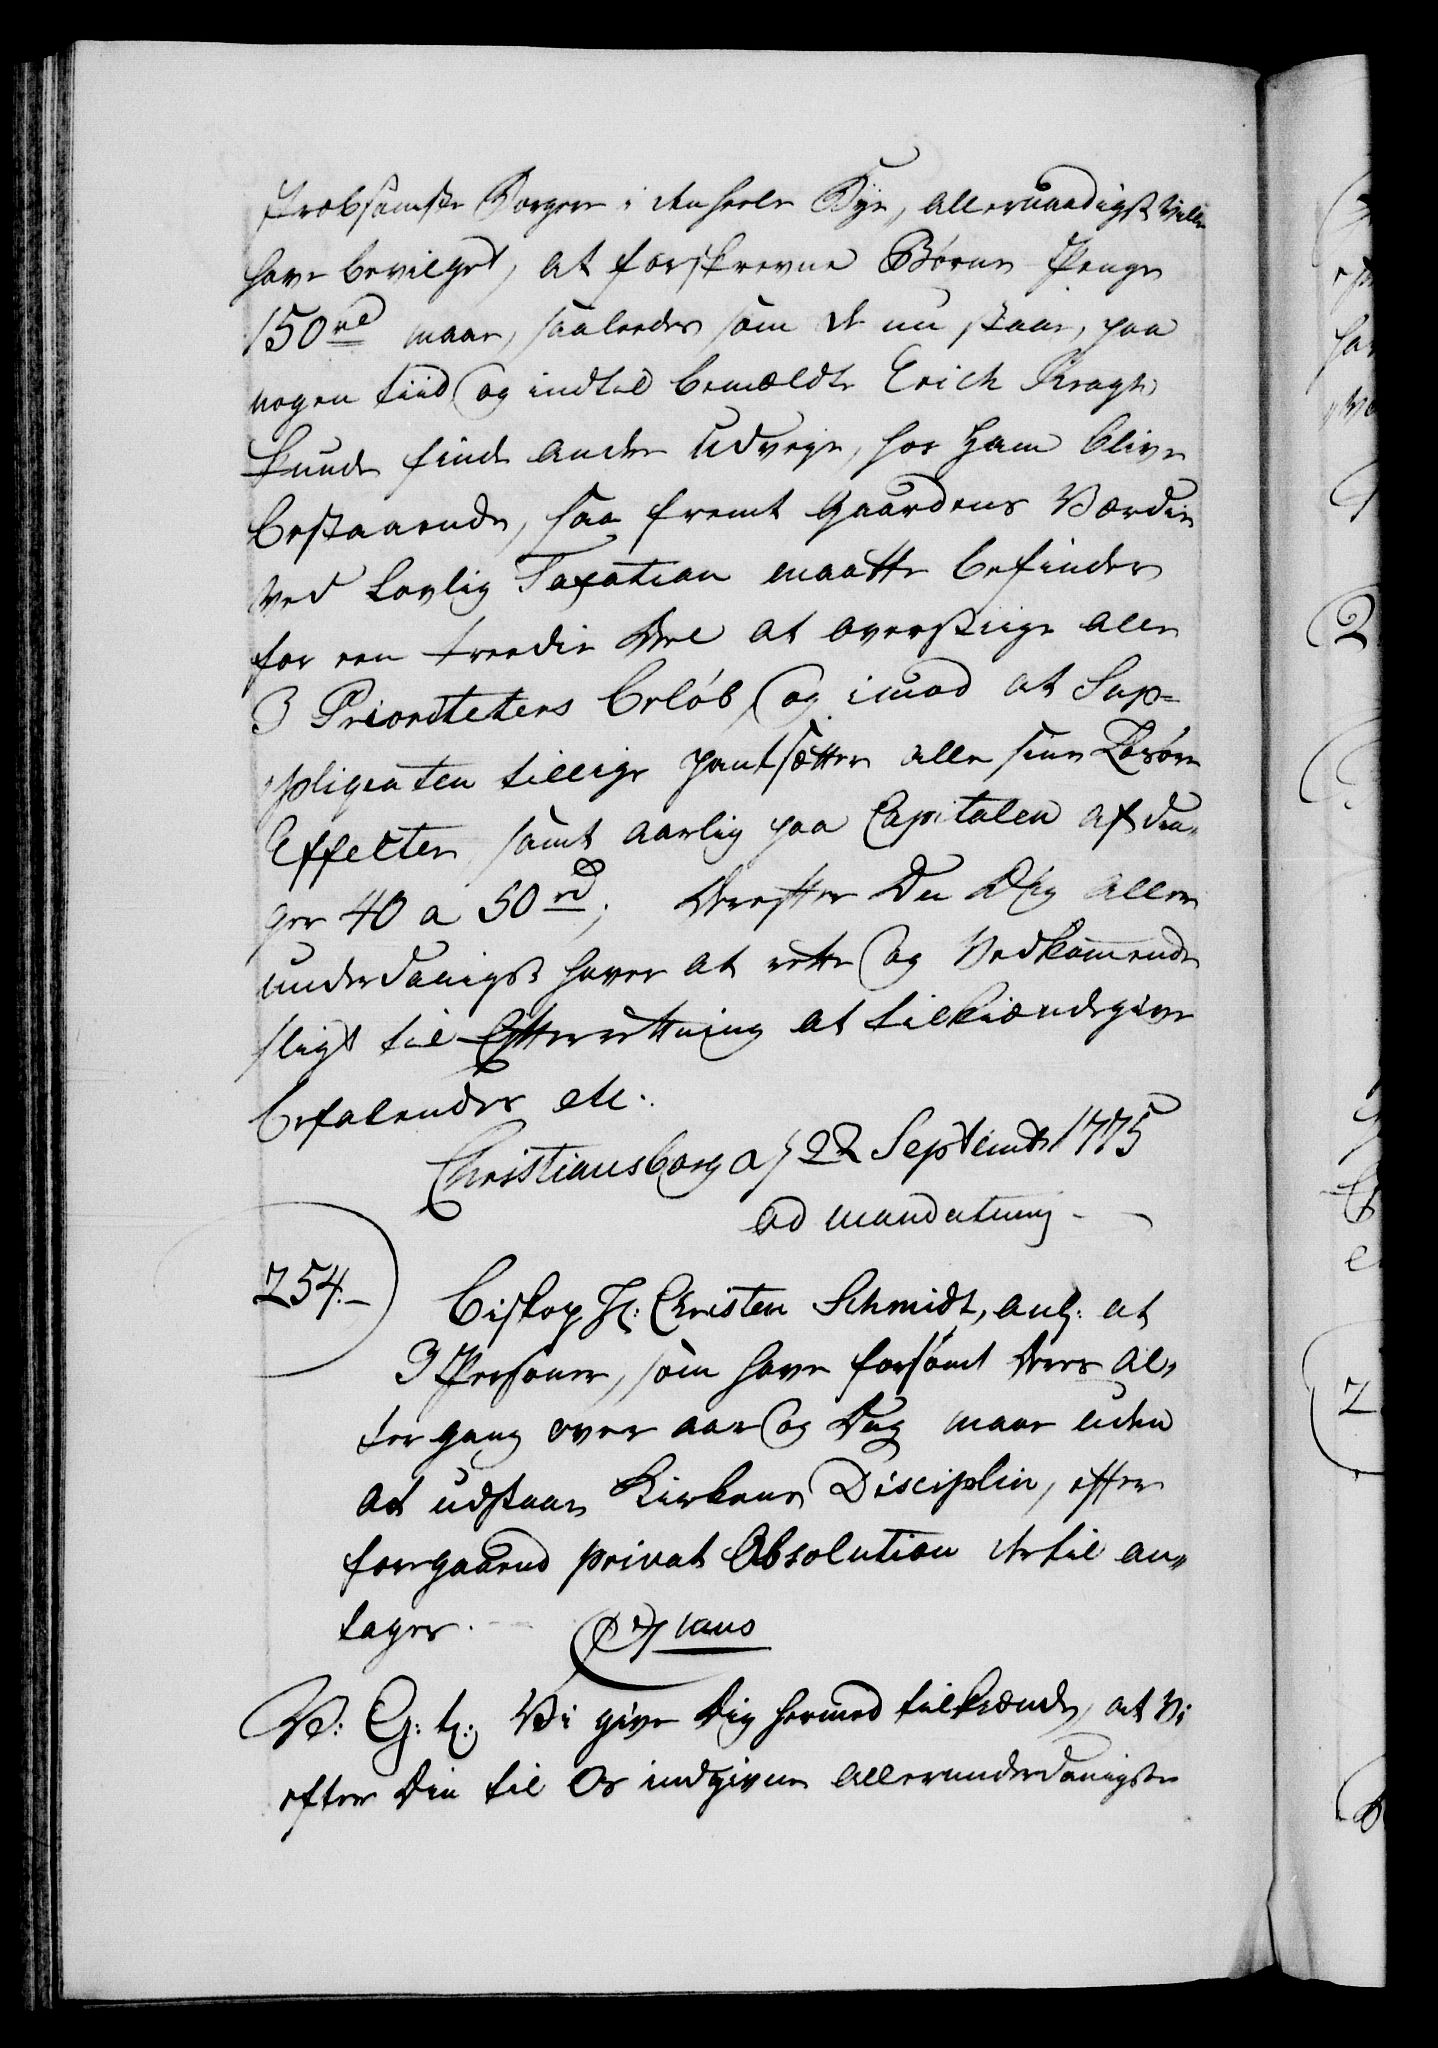 stræbsomste Borgere i den heele Bye, allernaadigst ville
have bevilget, at forskrevne Børne Penge
150 rd maae, saaledes som de nu staae, paa
nogen tiid og indtil bemældte Erich Kragh
kunde finde anden Udveye, hos ham blive
bestaaende, saa fremt Gaardens Værdie
ved Lovlig Taxation maatte befindes
for een treedie Deel at overstiige alle
3 Prioriteters beløb, og imod at Sup-
pliqventen tillige pantsætter alle sine Løsøre
Effecter samt aarlig paa Capitalen afdra-
ger 40 a 50 rd; Derefter Du Dig aller
underdanigst haver at rette og Vedkommende
sligt til Efterrettning at tilkiendegive
befalendes etc.
Christiansborg d. 22 Septembr 1775
ad mandatum
254.
Biskop Hr: Christen Schmidt, anl: at
3 Personer, som have forsømt deres Al-
tergang over aar og Dag maae uden
at udstaae Kirkens Disciplin, efter
foregaaend privat Absolution dertil an-
tages.
V: G: t: Vi give Dig hermed tilkiende, at Vi
efter Din til Os indgivne allerunderdanigste